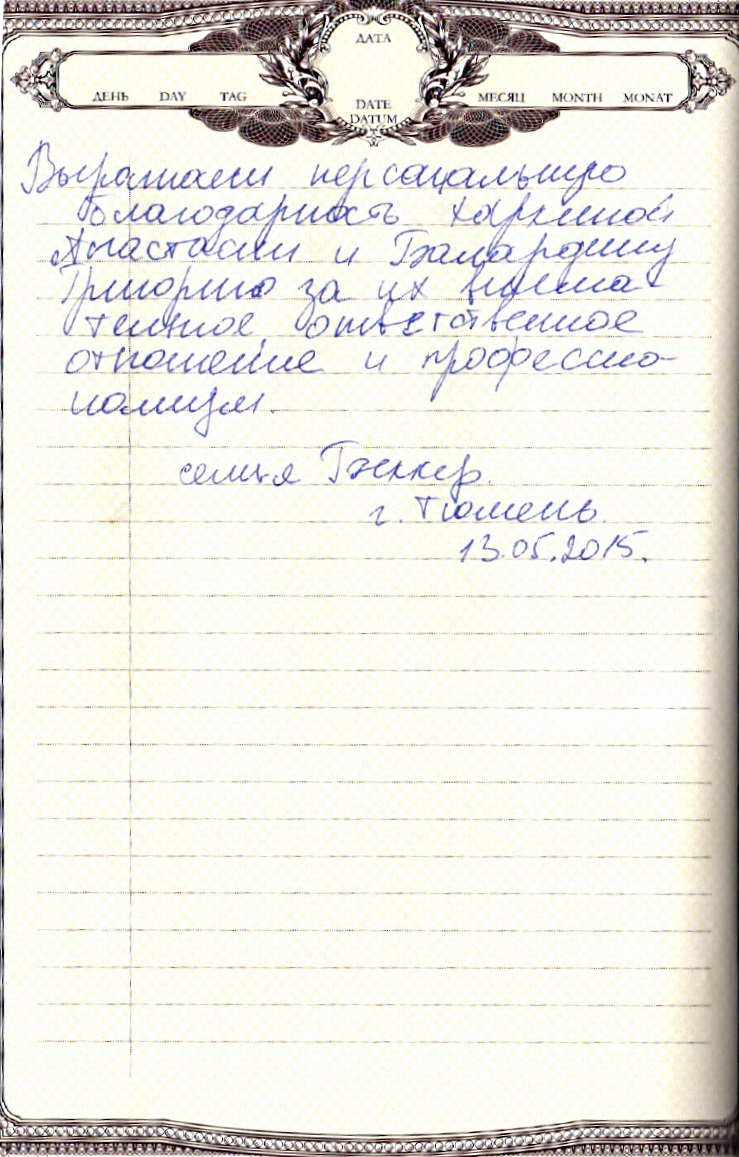 ДАТА
ДЕНЬ DAY TAG
DATE
DATUM
МЕСЯЦ MONTH MONAT
Выражаем персональную
благодарность Харкиной
Анастасии и
Григорию за их внима-
тельное ответственное
отношение и профессио-
нализм.
семья Беккер.
г. Тюмень.
13.05.2015.